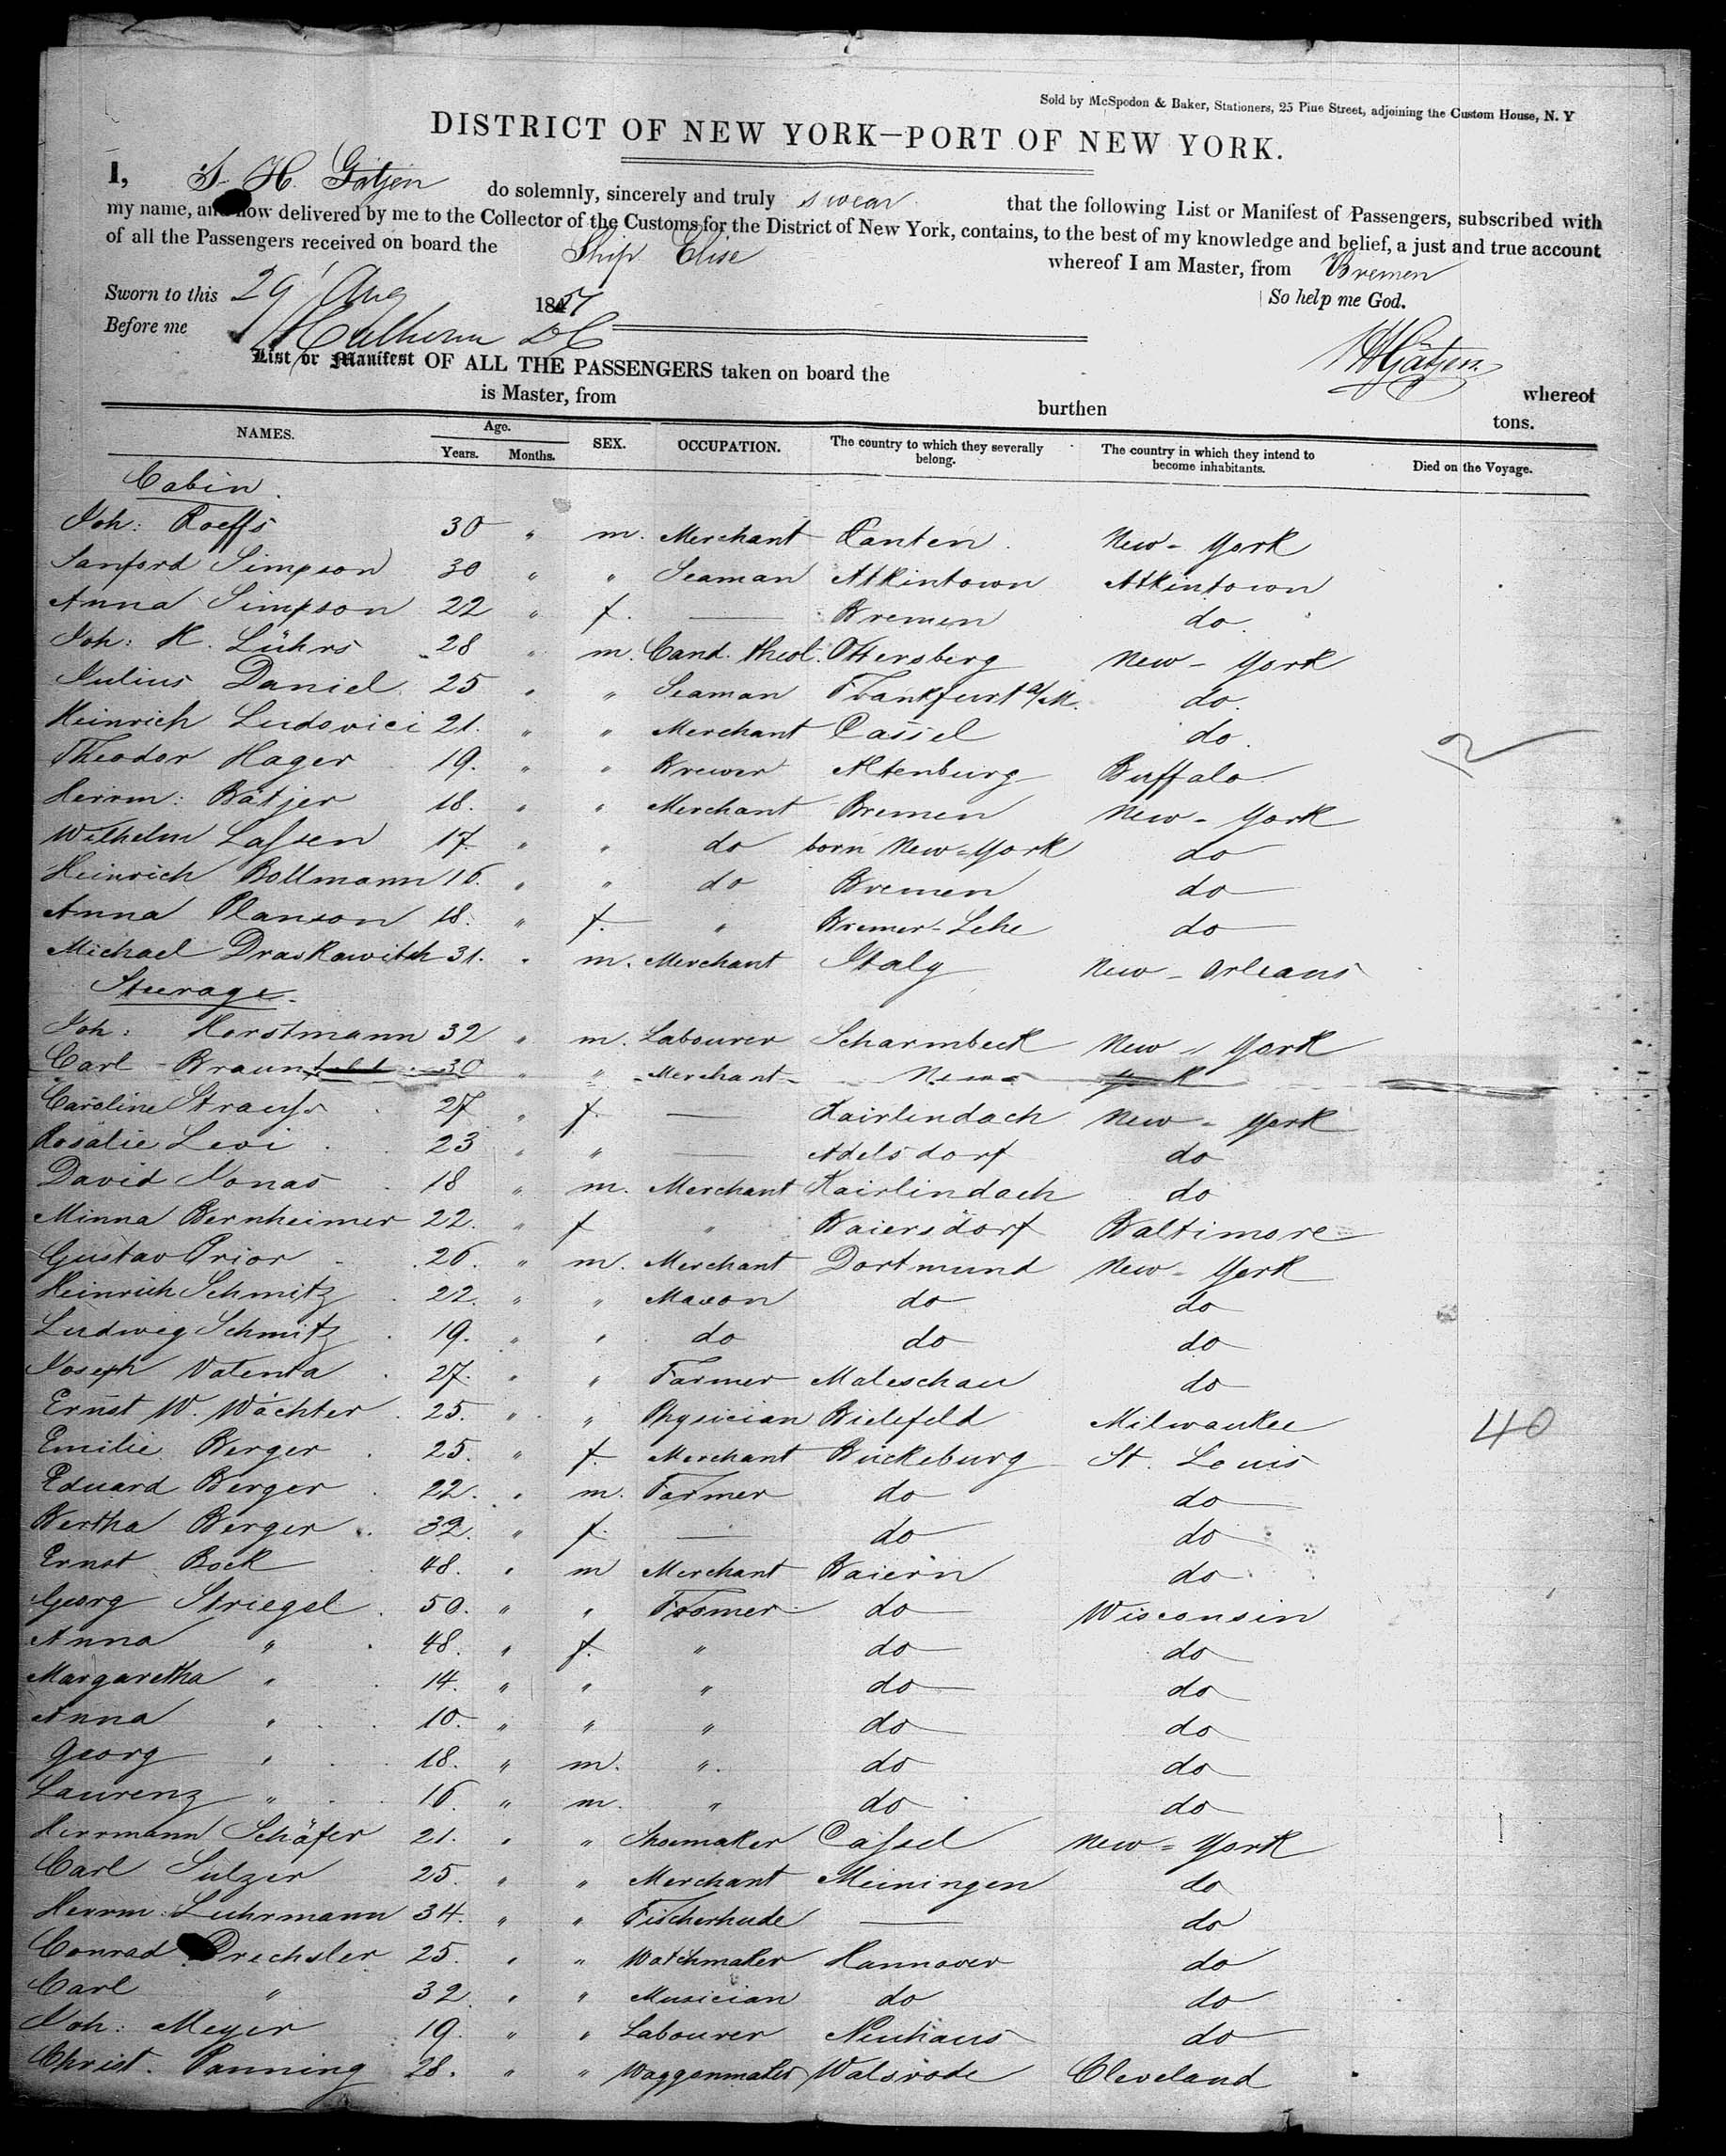 Sold by McSpedon & Baker, Stationers, 25 Pine Street, adjoining the Custom House, N. Y
DISTRICT OF NEW YORK—PORT OF NEW YORK.
I, S. H. Gätjen do solemnly, sincerely and truly swear that the following List or Manifest of Passengers, subscribed with
my name, and now delivered by me to the Collector of the Customs for the District of New York, contains, to the best of my knowledge and belief, a just and true account
of all the Passengers received on board the Ship Elise whereof I am Master, from Bremen
Sworn to this 29 Aug 18 So help me God.
Before me HGätjen
List or Manifest OF ALL THE PASSENGERS taken on board the whereof
is Master, from burthen tons.
NAMES. Age. Years. Months. SEX. OCCUPATION. The country to which they severally belong. The country in which they intend to become inhabitants. Died on the Voyage.
Cabin.
Joh: Roeffs 30 " m. Merchant Canten. New-York
Sanford Simpson 30 " " Seaman Atkintown Atkintown
Anna Simpson 22 " f. — Bremen do.
Joh: H. Lührs 28 " m. Cand. theol. Ottersberg New-York
Julius Daniel 25 " " Seaman Frankfurt a/M. do.
Heinrich Ludovici 21. " " Merchant Cassel do.
Theodor Hager 19. " " Brewer Altenburg Buffalo
Herrm: Bätjer 18. " " Merchant Bremen New-York
Wilhelm Lassen 17. " " do born New-York do
Heinrich Bollmann 16. " " do Bremen do
Anna Planson 18. " f. " Bremer-Lehe do
Michael Draskawitch 31. " m. Merchant Italy New-Orleans
Steerage.
Joh: Horstmann 32 " m. Labourer Scharmbeck New-York
Carl Braun 30 " " Merchant New York
Caroline Strauss 27 " f. — Kairlindach New-York
Rosalie Levi 23 " " — Adelsdorf do
David Jonas 18 " m. Merchant Kairlindach do
Minna Bernheimer 22. " f " Baiersdorf Baltimore
Gustav Prior 26. " m. Merchant Dortmund New-York
Heinrich Schmitz 22. " " Mason do do
Ludwig Schmitz 19. " " do do do
Joseph Vatenta 27. " " Farmer Maleschau do
Ernst W. Wächter 25. " " Physician Bielefeld Milwaukee 40
Emilie Berger 25. " f. Merchant Bückeburg St. Louis
Eduard Berger 22. " m. Farmer do do
Bertha Berger 32. " f. — do do
Ernst Bock 48. " m Merchant Baiern do
Georg Striegel 50. " " Farmer do Wisconsin
Anna " 48. " f. " do do
Margaretha " 14. " " " do do
Anna " 10. " " " do do
Georg " 18. " m. " do do
Laurenz " 16. " m. " do do
Herrmann Schäfer 21. " " Shoemaker Cassel New-York
Carl Sulzer 25. " " Merchant Meiningen do
Herrm: Luhrmann 34. " " Fischerhude — do
Conrad Drechsler 25. " " Watchmaker Hannover do
Carl " 32. " " Musician do do
Joh: Meyer 19. " " Labourer Neuhaus do
Christ. Panning 28. " " Waggonmaker Walsrode Cleveland